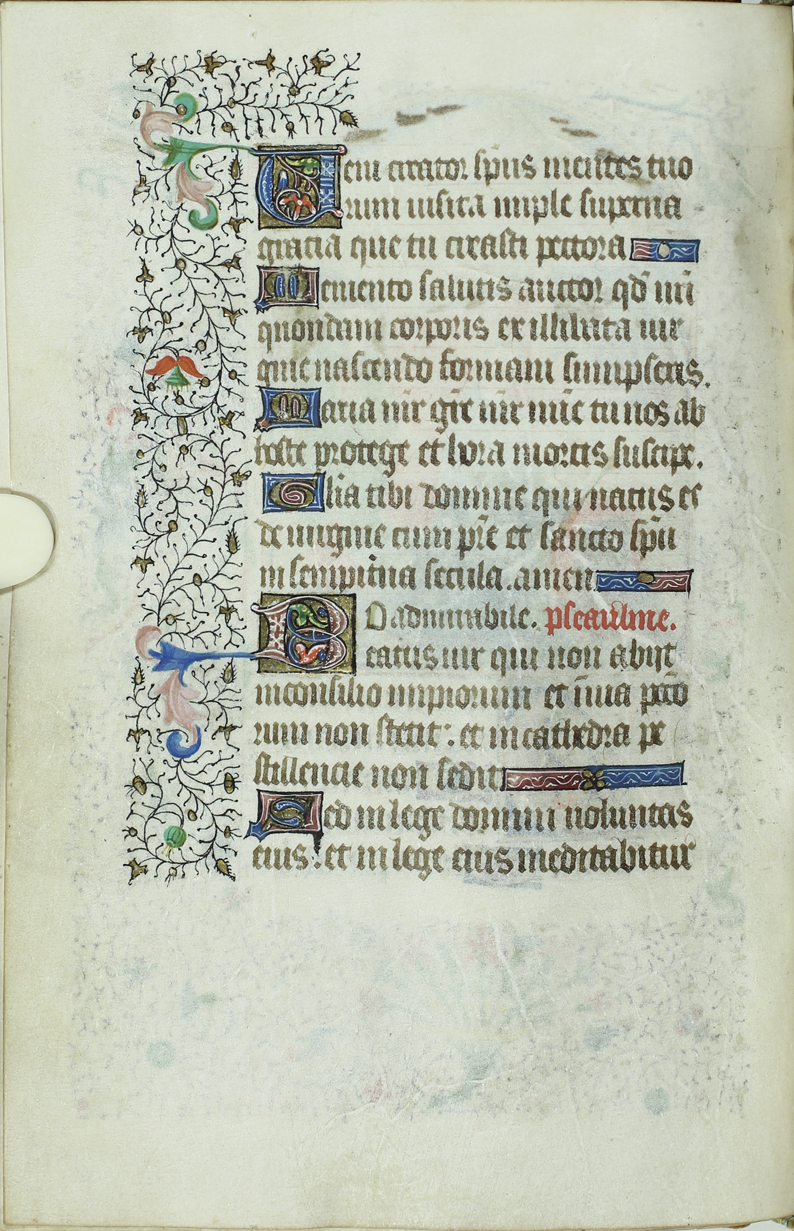 Veni creator sp̄us mentes tuo
rum uisita imple superna
gratia que tu creasti pectora
Memento salutis auctor qd̄ nr̄i
quondam corporis ex illibata uir
gine nascendo formam sumpseris.
Maria mr̄ grē mr̄ mīe tu nos ab
hoste protege et hora mortis suscipe.
Glīa tibi domine qui natus es
de uirgine cum pr̄e et sancto sp̄u
in sempit̄na secula. amen
O admirabile. pseaulme.
Beatus uir qui non abijt
in consilio impiorum et ī uia pecc̄o
rum non stetit: et in cathedra pe
stillencie non sedit
Sed in lege domini uoluntas
eius: et in lege eius meditabitur